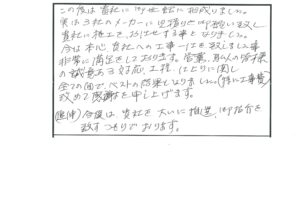 この度は貴社に御世話に相成りました。
実は3社のメーカーに見積りを御願い致し
貴社に施工をお任せする事となりました。
今は本心、貴社への工事一任を致しました事
非常に満足をしております。営業、職人の皆様
の誠意ある対応、工程、仕上りに関し
全ての面で、ベストの結果となりました。(特に工事費)
改めて感謝を申し上げます。
(追伸) 今後は、貴社を大いに推奨、御紹介を
致すつもりでおります。